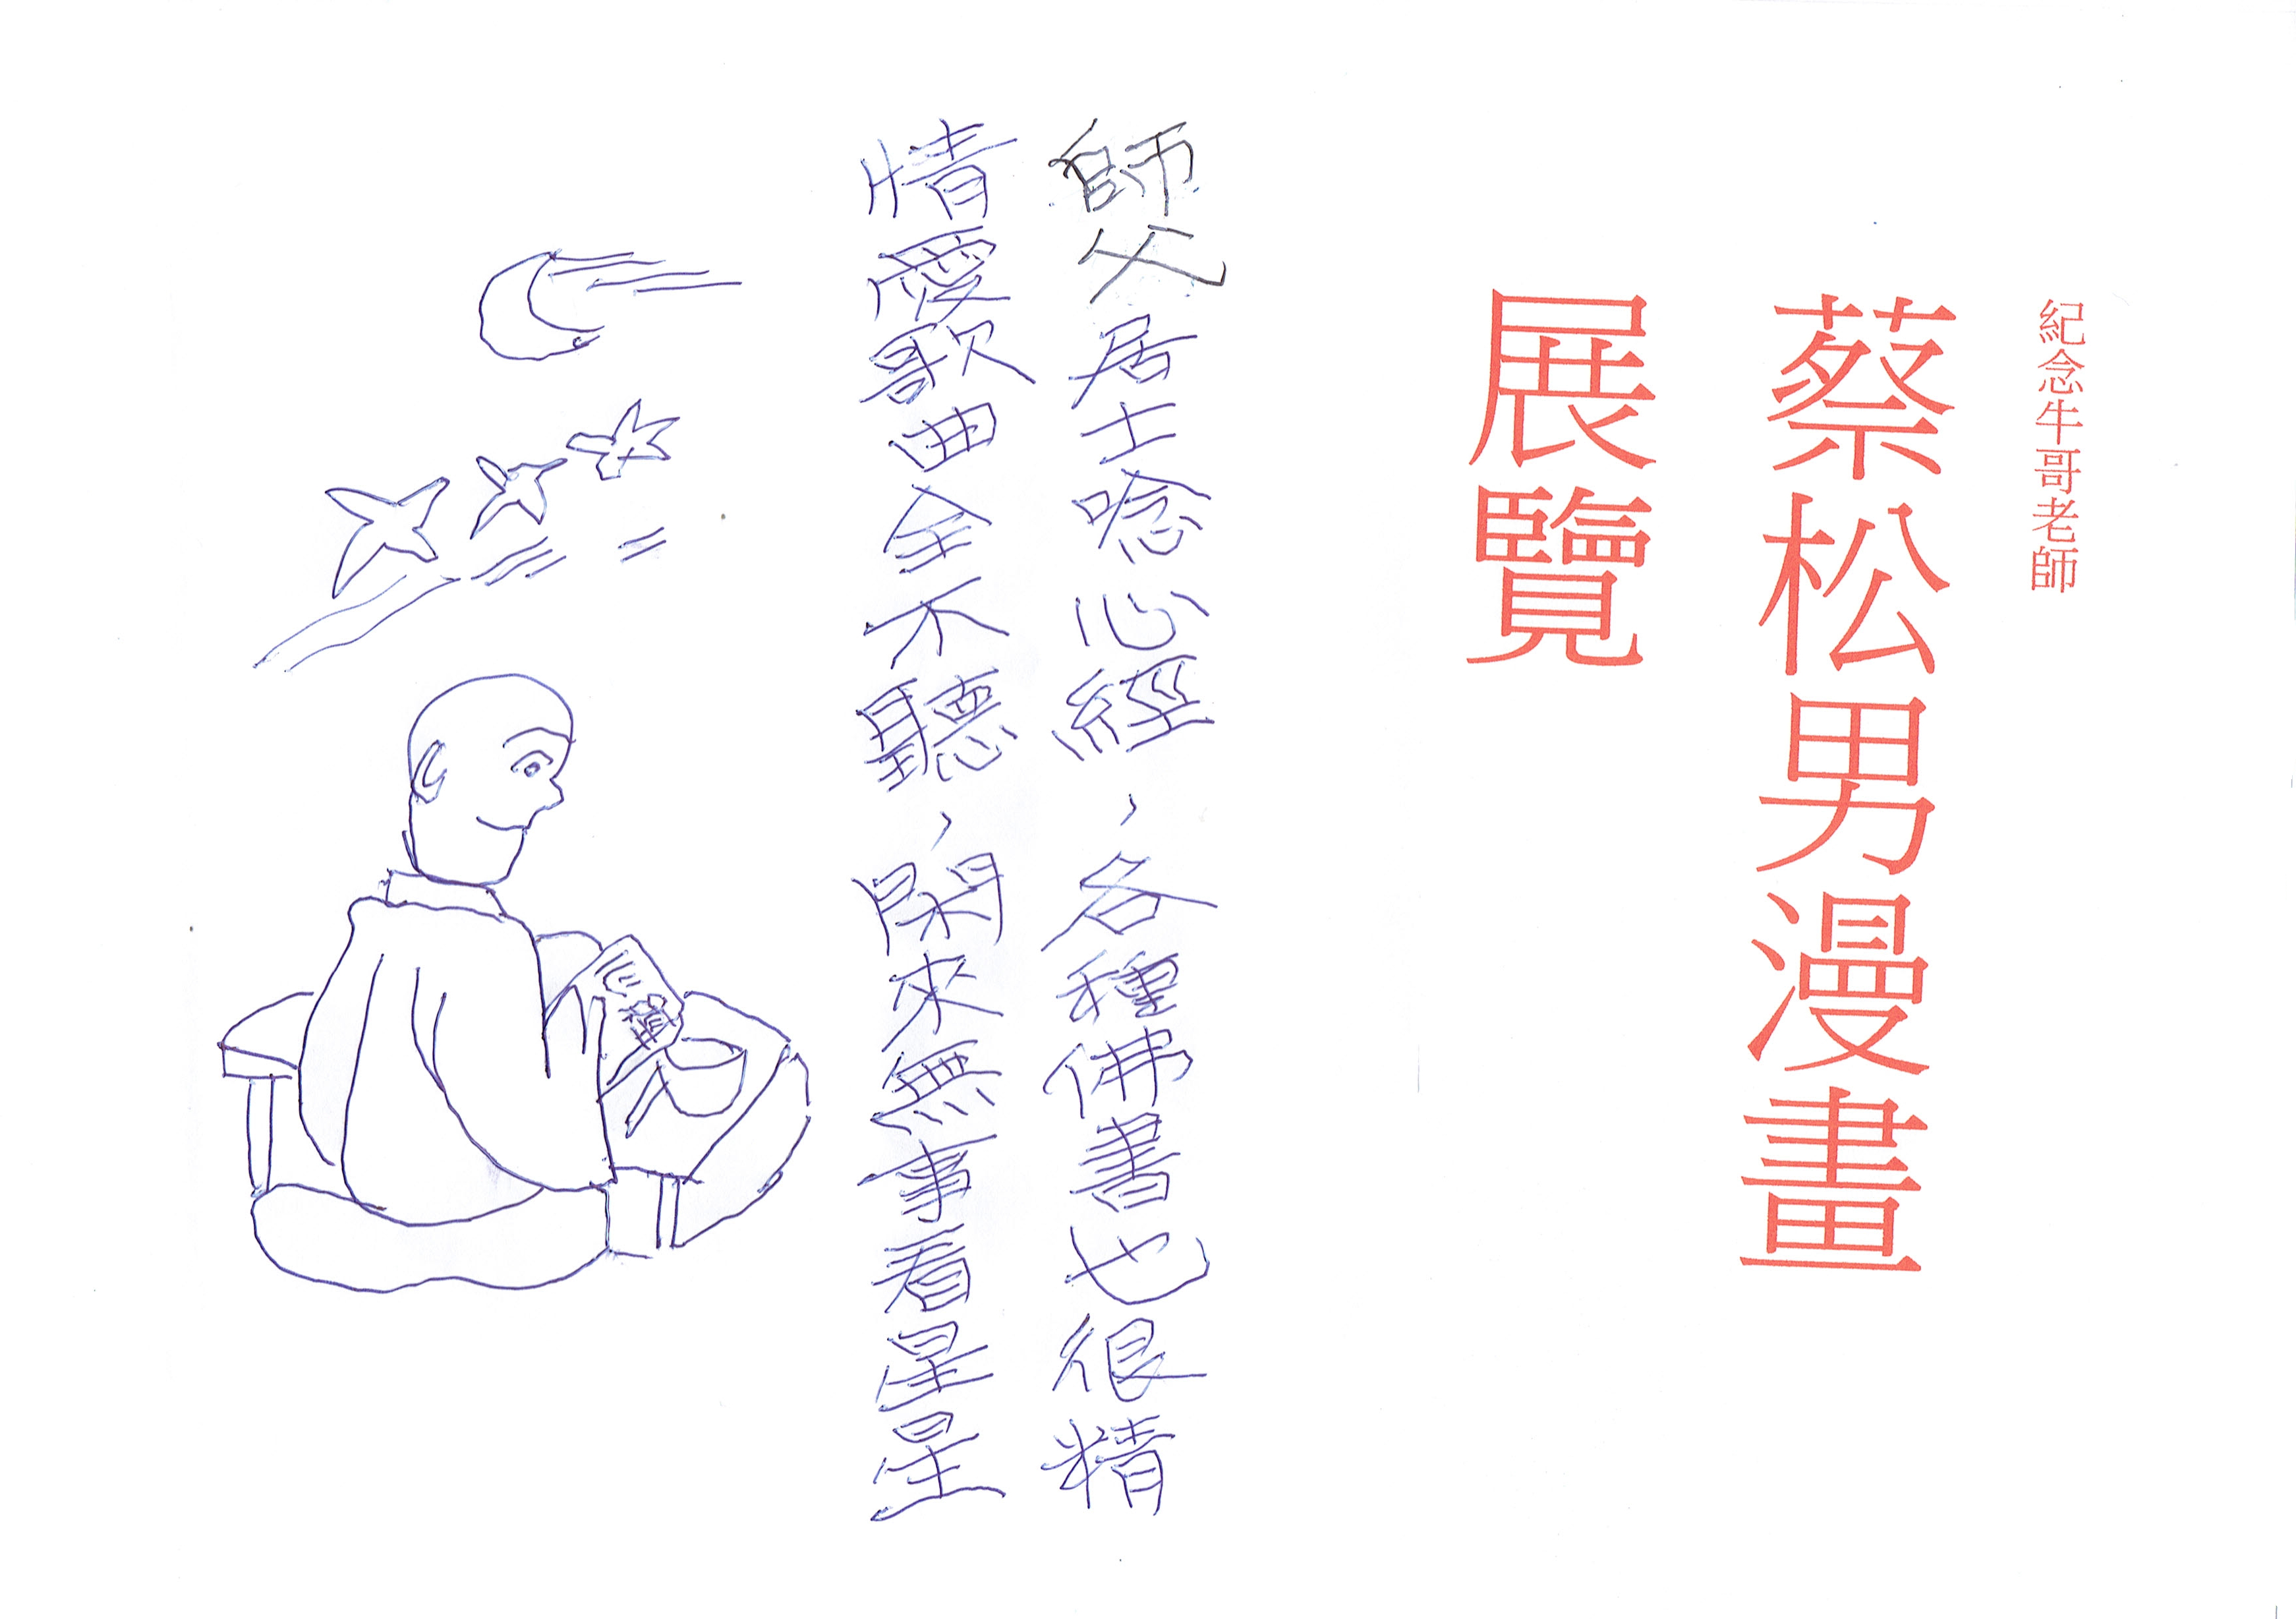 紀念牛哥老師
蔡松男漫畫
展覽
師父居士唸心經，各種佛書也很精
情愛歌曲全不聽，閑來無事看星星